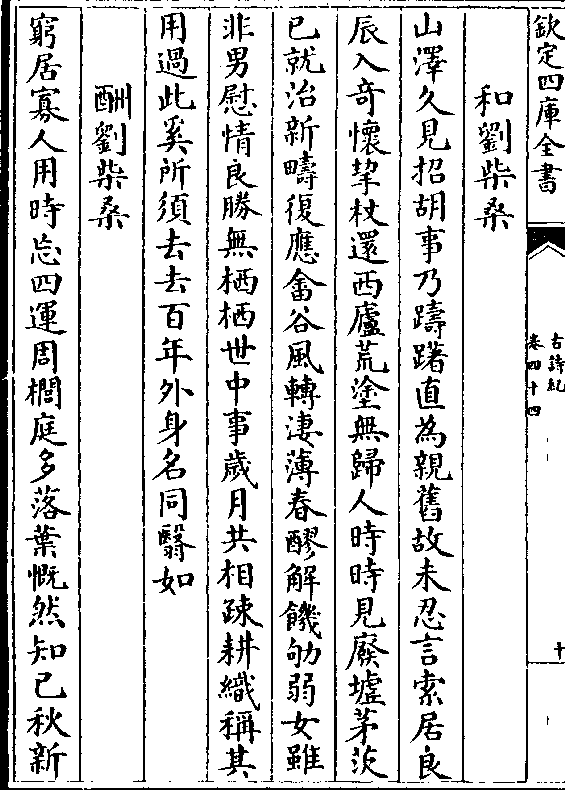 欽定四庫全書
古詩紀
卷四十四
十
和劉柴桑
山澤久見招胡事乃躊躇直為親舊故未忍言索居良
辰入奇懷挈杖還西廬荒塗無歸人時時見廢墟茅茨
已就治新疇復應畬谷風轉淒薄春醪解饑劬弱女雖
非男慰情良勝無栖栖世中事歲月共相疎耕織稱其
用過此奚所須去去百年外身名同翳如
酬劉柴桑
窮居寡人用時忘四運周櫩庭多落葉慨然知已秋新